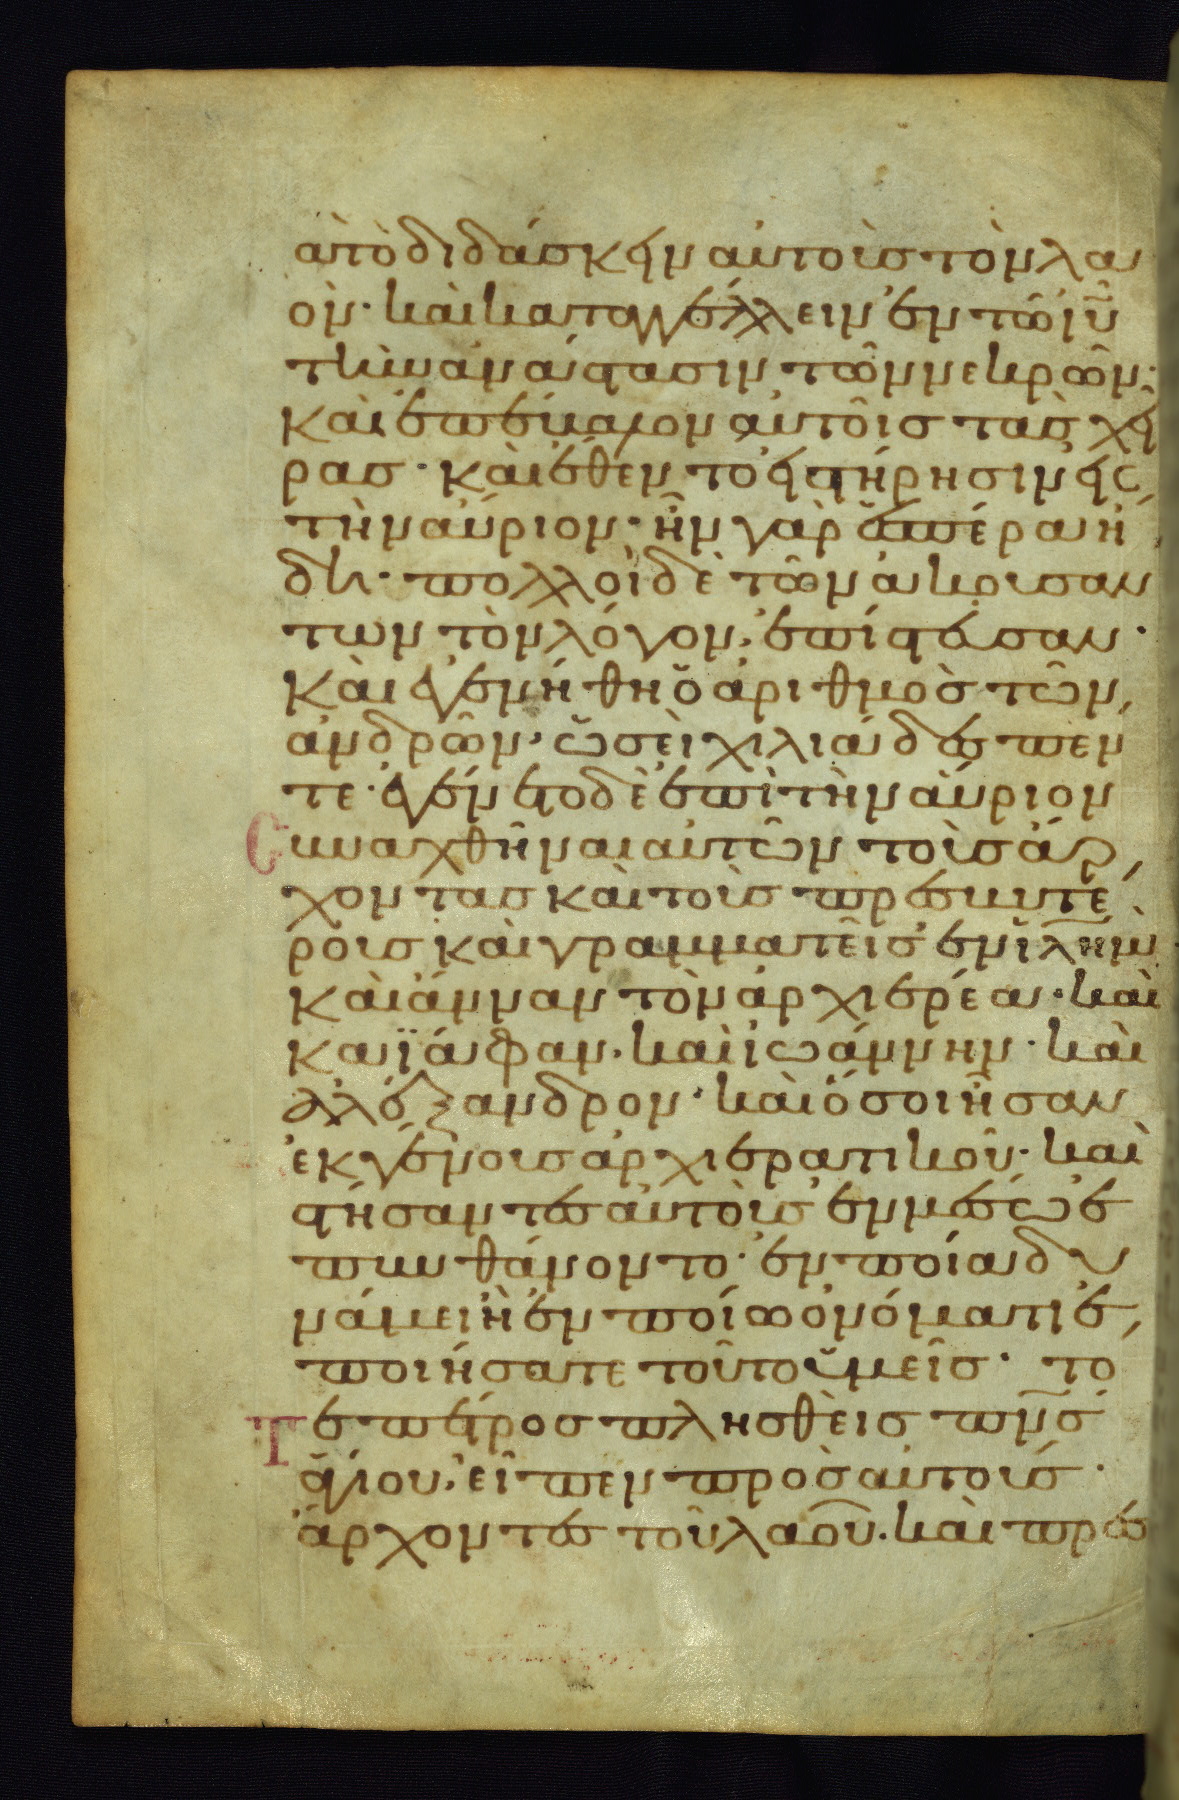 ὰ τὸ διδάσκειν αὐτοὺς τὸν λα
ὸν· καὶ καταγγέλλειν ἐν τῶ ἰ̅υ̅
τὴν ἀνάστασιν τῶν νεκρῶν·
καὶ ἐπέβαλον αὐτοῖς τὰς χεῖ
ρας· καὶ ἔθεντο εἰς τήρησιν εἰς
τὴν αὔριον· ἦν γὰρ ἑσπέρα ἤ
δη· πολλοὶ δὲ τῶν ἀκουσάν
των τὸν λόγον, ἐπίστευσαν·
καὶ ἐγενήθη ὁ ἀριθμὸς τῶν
ἀνδρῶν, ὡσεὶ χιλιάδες πέν
τε· ἐγένετο δὲ ἐπὶ τὴν αὔριον
Συναχθῆναι αὐτῶν τοὺς ἄρ
χοντας καὶ τοὺς πρεσβυτέ
ρους καὶ γραμματεῖς ἐν ἰ̅λ̅η̅μ̅·
καὶ ἄνναν τὸν ἀρχιερέα· καὶ
καϊάφαν· καὶ ἰωάννην· καὶ
ἀλέξανδρον· καὶ ὅσοι ἦσαν
ἐκ γένους ἀρχιερατικοῦ· καὶ
στήσαντες αὐτοὺς ἐν μέσω ἐ
πυνθάνοντο· ἐν ποία δυ
νάμει ἢ ἐν ποίω ὀνόματι ἐ
ποιήσατε τοῦτο ὑμεῖς· το
Τε πέτρος πλησθεὶς π̅ν̅ς̅
ἁγίου, εἶπεν πρὸς αὐτούς·
ἄρχοντες τοῦ λαοῦ· καὶ πρεσ